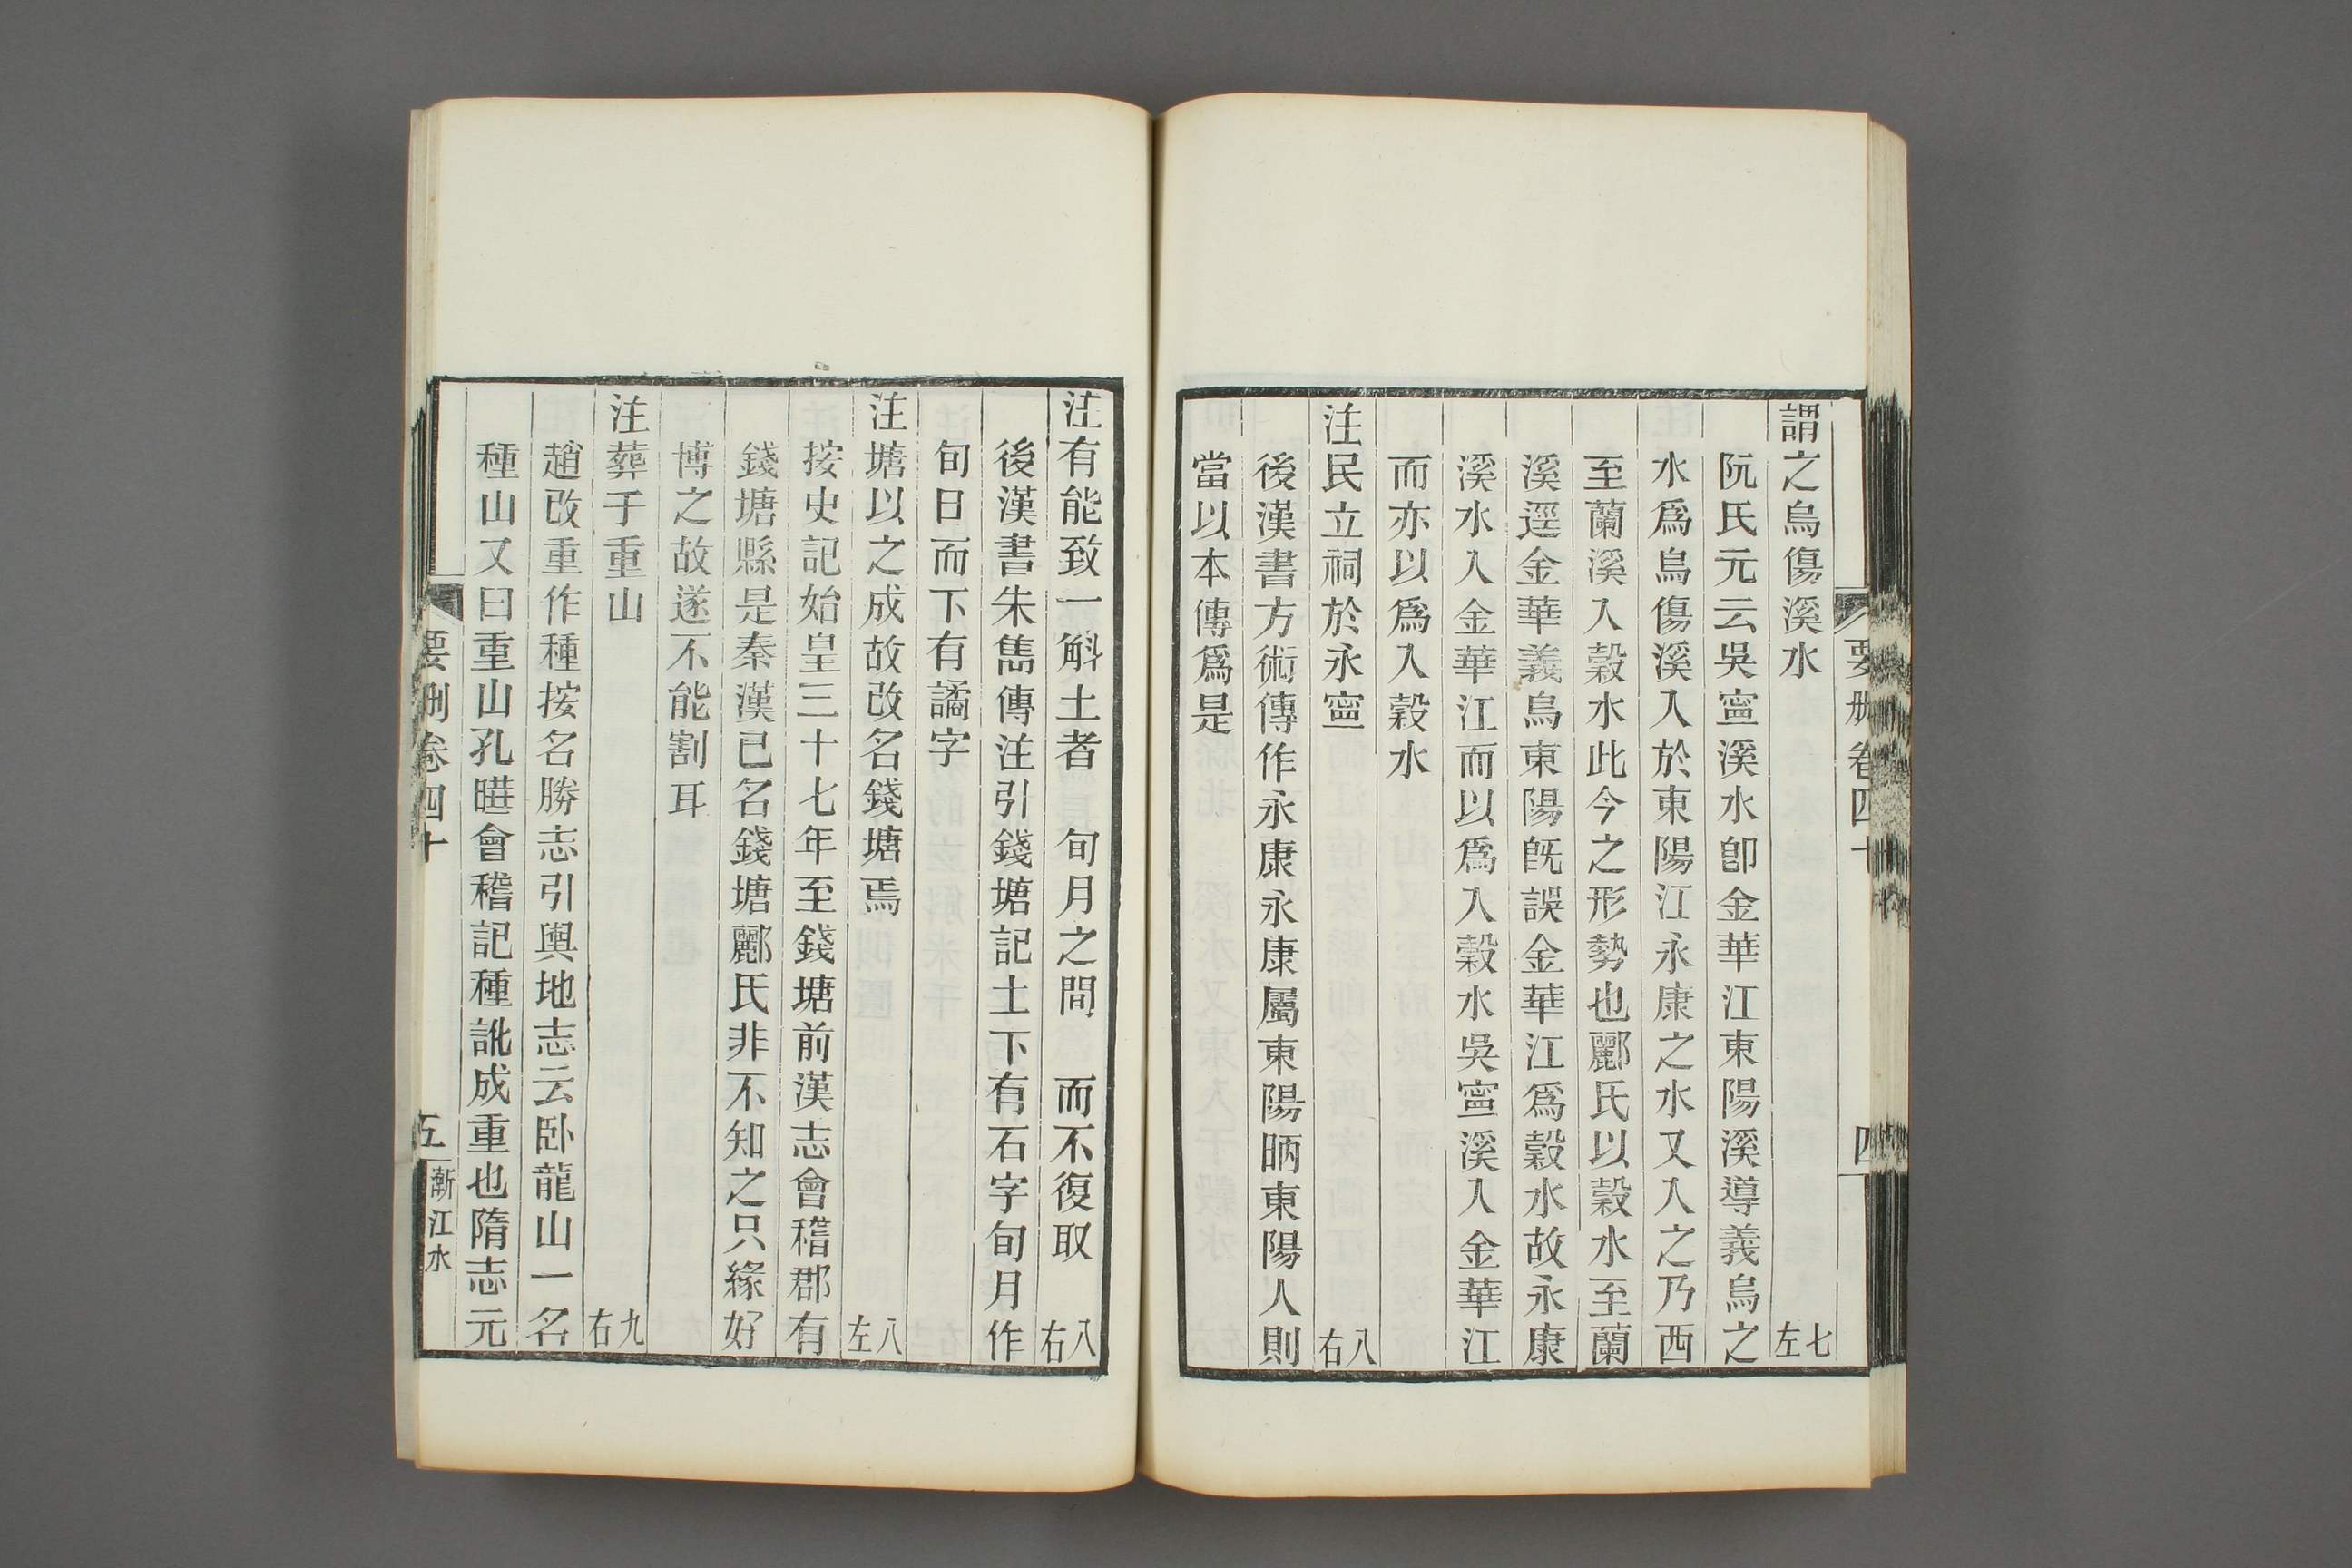 要刪卷四十
四
謂之烏傷溪水 七左
阮氏元云吳甯溪水卽金華江東陽溪導義烏之
水爲烏傷溪入於東陽江永康之水又入之乃西
至蘭溪入穀水此今之形勢也酈氏以穀水至蘭
溪逕金華義烏東陽旣誤金華江爲穀水故永康
溪水入金華江而以爲入穀水吳甯溪入金華江
而亦以爲入穀水
注民立祠於永甯 八右
後漢書方術傳作永康永康屬東陽昞東陽人則
當以本傳爲是
注有能致一斛土者 旬月之間 而不復取 八右
後漢書朱雋傳注引錢塘記土下有石字旬月作
旬日而下有譎字
注塘以之成故改名錢塘焉 八左
按史記始皇三十七年至錢塘前漢志會稽郡有
錢塘縣是秦漢已名錢塘酈氏非不知之只緣好
博之故遂不能割耳
注葬于重山 九右
趙改重作種按名勝志引輿地志云卧龍山一名
種山又曰重山孔曄會稽記種訛成重也隋志元
要刪卷四十
五
漸江水